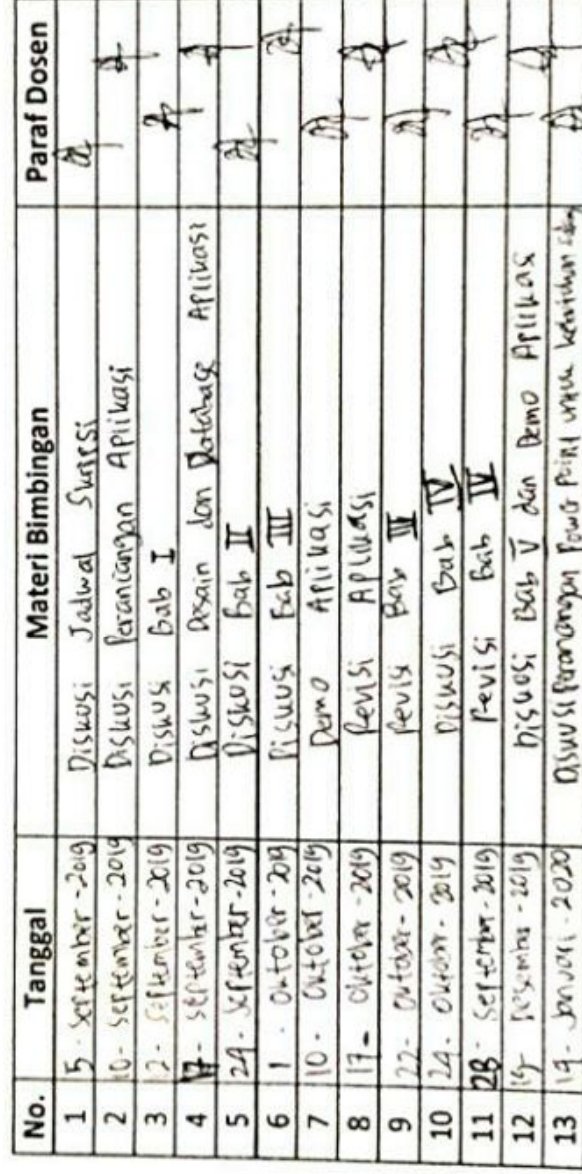 No. Tanggal Materi Bimbingan Paraf Dosen
1 5 - September - 2019 Diskusi Jadwal Skripsi
2 10 - September - 2019 Diskusi Perancangan Aplikasi
3 12 - September - 2019 Diskusi Bab I
4 17 - September - 2019 Diskusi Desain dan Database Aplikasi
5 24 - September - 2019 Diskusi Bab II
6 1 - Oktober - 2019 Diskusi Bab III
7 10 - Oktober - 2019 Demo Aplikasi
8 17 - Oktober - 2019 Revisi Aplikasi
9 22 - Oktober - 2019 Revisi Bab III
10 24 - Oktober - 2019 Diskusi Bab IV
11 28 - September - 2019 Revisi Bab IV
12 Desember - 2019 Diskusi Bab V dan Demo Aplikasi
13 14 - Januari - 2020 Diskusi Power Point untuk